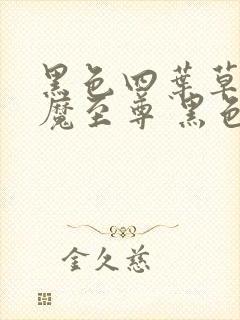 黑色四葉草
魔至尊 黑色
金久慈